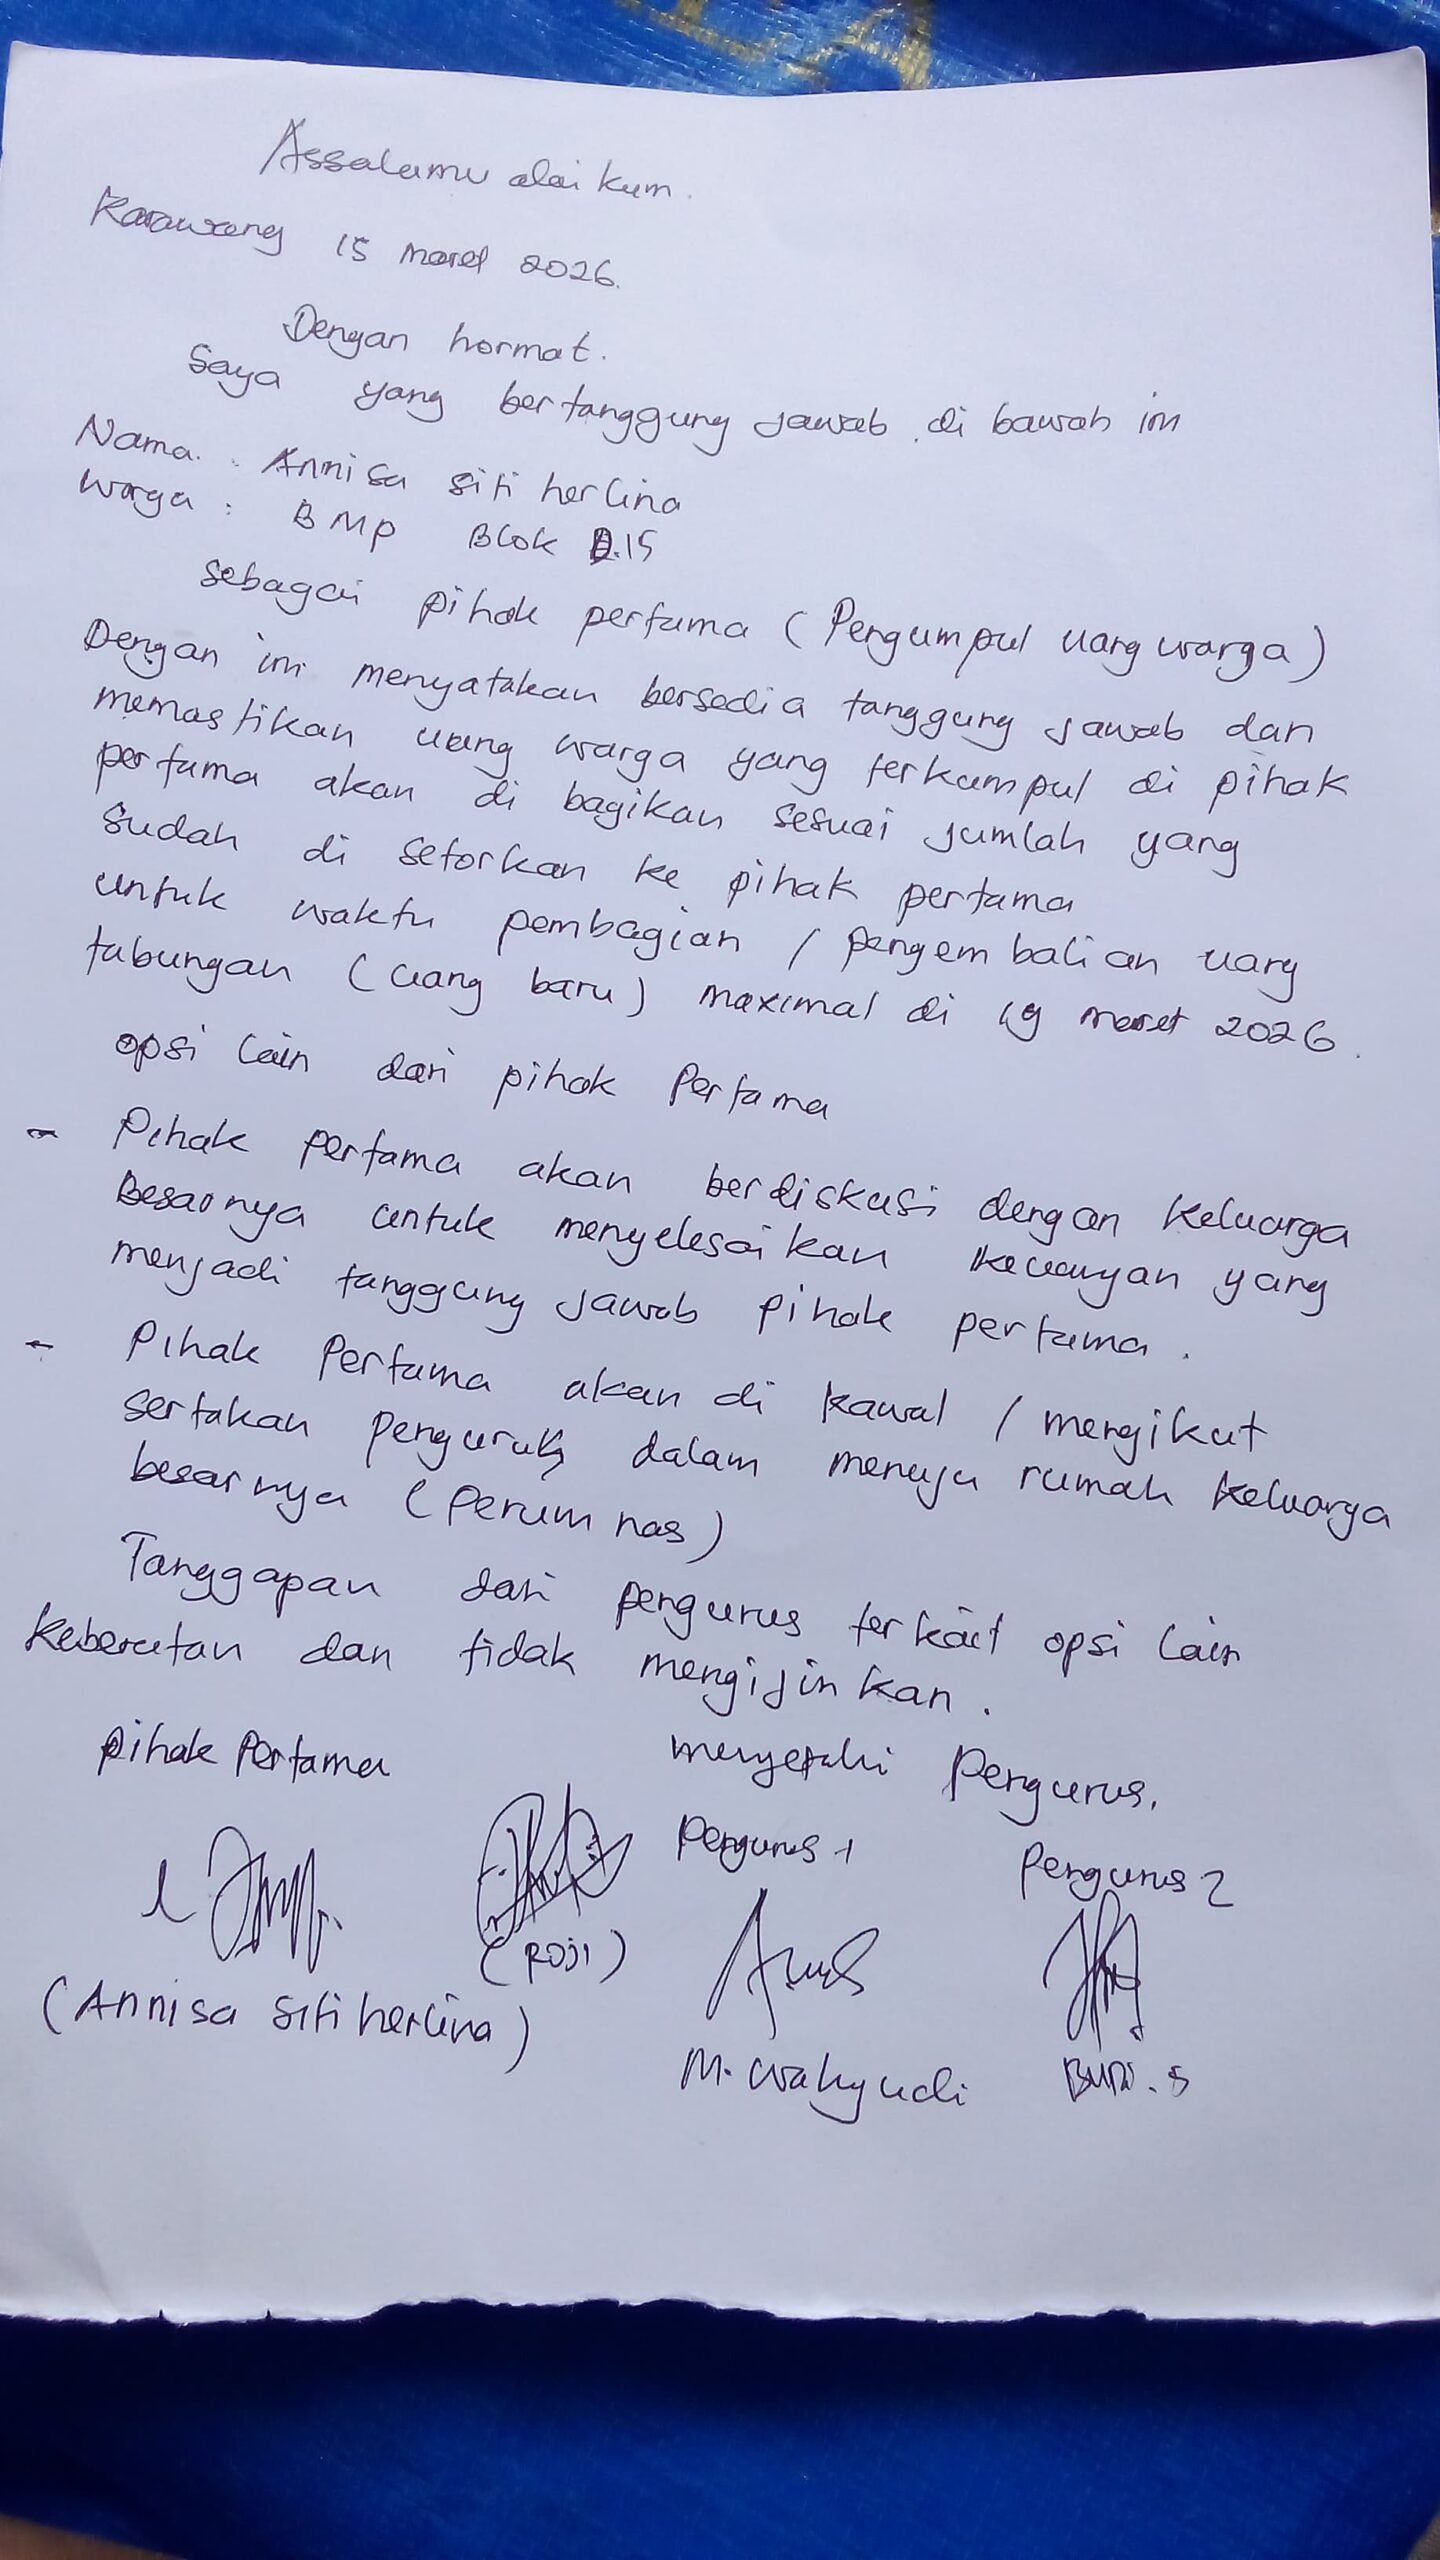 Assalamu alai kum.
Karawang 15 maret 2026.
Dengan hormat.
Saya yang bertanggung jawab di bawah ini
Nama : Annisa siti herlina
Warga : BMP Blok D.15
sebagai pihak pertama (Pengumpul uang warga)
Dengan ini menyatakan bersedia tanggung jawab dan
memastikan uang warga yang terkumpul di pihak
pertama akan di bagikan sesuai jumlah yang
sudah di setorkan ke pihak pertama
untuk waktu pembagian / pengem balian uang
tabungan (uang baru) maximal di 19 maret 2026.
opsi lain dari pihak Pertama
- Pihak pertama akan berdiskusi dengan keluarga
Besarnya untuk menyelesaikan keuangan yang
menjadi tanggung jawab pihak pertama.
- Pihak Pertama akan di kawal / mengikut
sertakan pengurus dalam menuju rumah keluarga
besarnya (perum nas)
Tanggapan dari pengurus terkait opsi lain
keberatan dan tidak mengijinkan.
pihak Pertama mengetahui Pengurus.
Pengurus 1 Pengurus 2
(ROJI)
(Annisa siti herlina)
M. Wahyudi BUDI.S